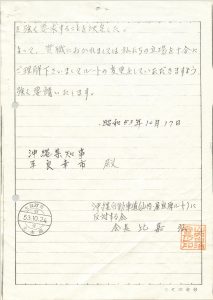 を強く要求することを決定した。
よって、貴職におかれましては私たちの立場を十分に
ご理解下さいましてルートの変更をしていただきますよう
強く要請いたします。
昭和53年10月17日
沖縄県知事
平良幸市 殿
沖縄自動車道(石川
反対する会
会長 比嘉
53.10.24